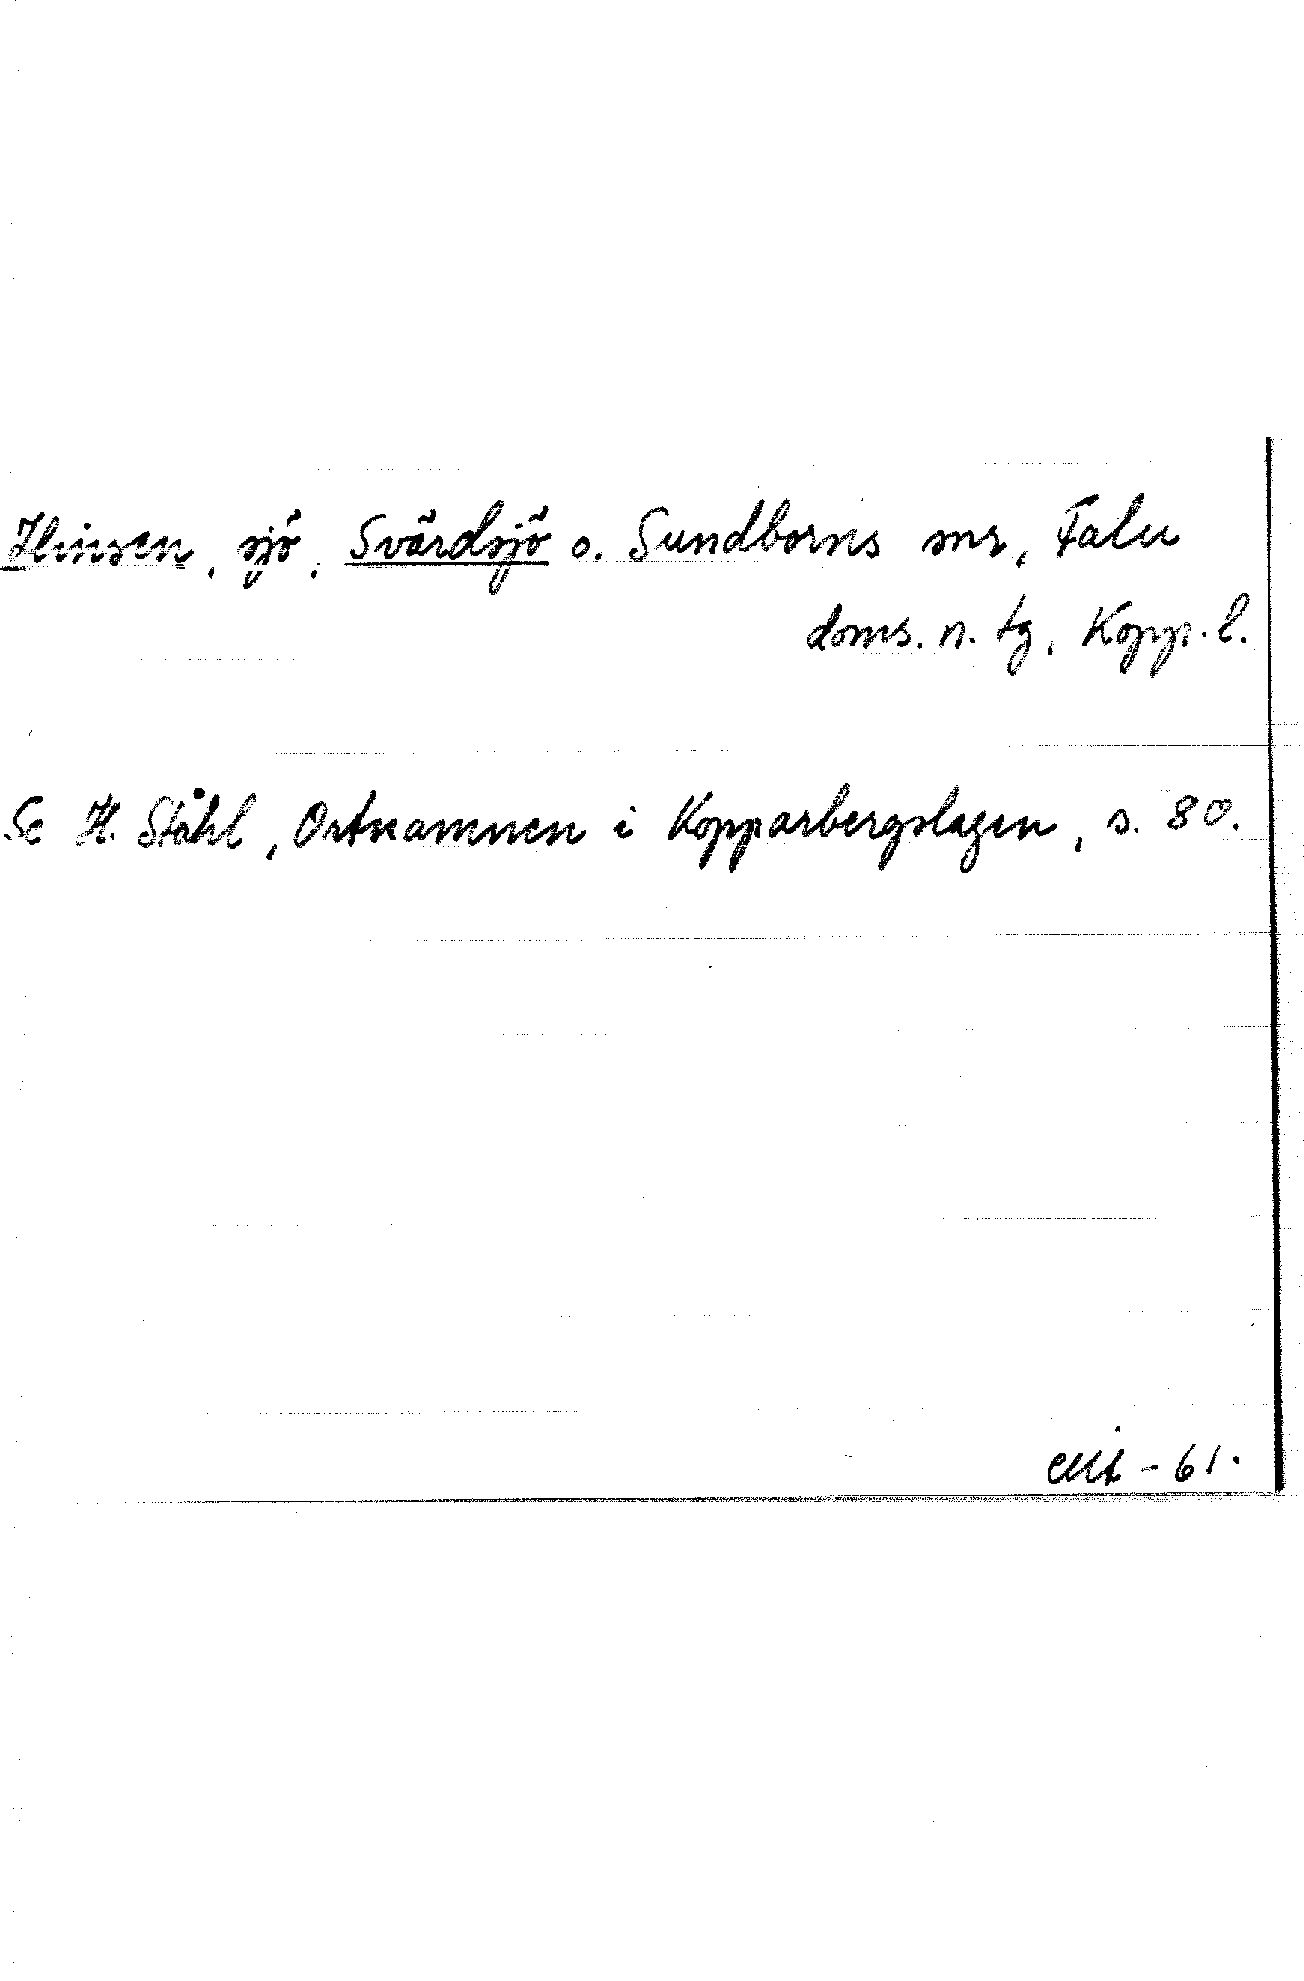 Hinsen, sjö, Svärdsjö o. Sundborns snr, Falu
doms. n. tg, Kopp. l.
Se H. Ståhl, Ortnamnen i Kopparbergslagen, s. 80.
-61.